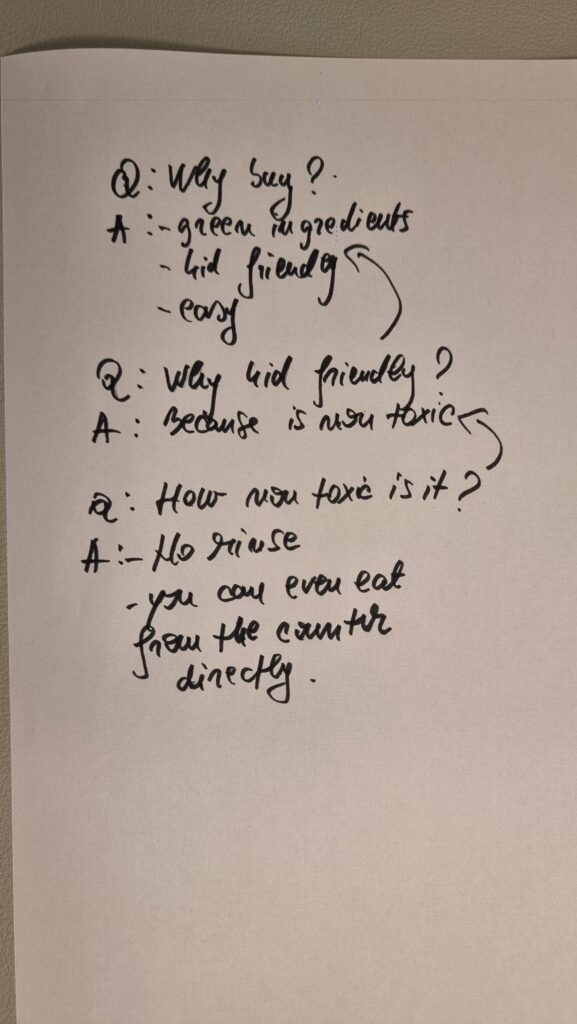 Q: Why buy?
A: - green ingredients
- kid friendly
- easy
Q: Why kid friendly?
A: Because is non toxic
Q: How non toxic is it?
A: - No rinse
- you can even eat
from the counter
directly.